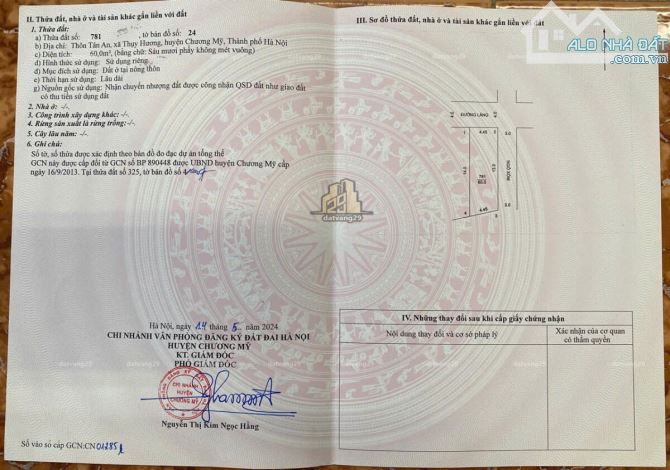 II. Thửa đất, nhà ở và tài sản khác gắn liền với đất
1. Thửa đất:
a) Thửa đất số: 781 , tờ bản đồ số: 24
b) Địa chỉ: Thôn Tân An, xã Thụy Hương, huyện Chương Mỹ, Thành phố Hà Nội
c) Diện tích: 60,0m², (bằng chữ: Sáu mươi phẩy không mét vuông)
d) Hình thức sử dụng: Sử dụng riêng
đ) Mục đích sử dụng: Đất ở tại nông thôn
e) Thời hạn sử dụng: Lâu dài
g) Nguồn gốc sử dụng: Nhận chuyển nhượng đất được công nhận QSD đất như giao đất
có thu tiền sử dụng đất
2. Nhà ở: -/-.
3. Công trình xây dựng khác: -/-.
4. Rừng sản xuất là rừng trồng: -/-.
5. Cây lâu năm: -/-.
6. Ghi chú:
Số tờ, số thửa được xác định theo bản đồ đo đạc dự án tổng thể
GCN này được cấp đổi từ GCN số BP 890448 được UBND huyện Chương Mỹ cấp
ngày 16/9/2013. Tại thửa đất số 325, tờ bản đồ số
Hà Nội, ngày 14 tháng 5 năm 2024
CHI NHÁNH VĂN PHÒNG ĐĂNG KÝ ĐẤT ĐAI HÀ NỘI
HUYỆN CHƯƠNG MỸ
KT. GIÁM ĐỐC
PHÓ GIÁM ĐỐC
CHI NHÁNH
HUYỆN
CHƯƠNG MỸ
Nguyễn Thị Kim Ngọc Hằng
Số vào sổ cấp GCN:CN 01285
III. Sơ đồ thửa đất, nhà ở và tài sản khác gắn liền với đất
ALO NHÀ ĐẤT
ĐƯỜNG LÀNG
1 4.45 2
5.0
14.0
13.0
781
60.0
4 4.45 3
5.0
datvang29
IV. Những thay đổi sau khi cấp giấy chứng nhận
Nội dung thay đổi và cơ sở pháp lý
Xác nhận của cơ quan
có thẩm quyền